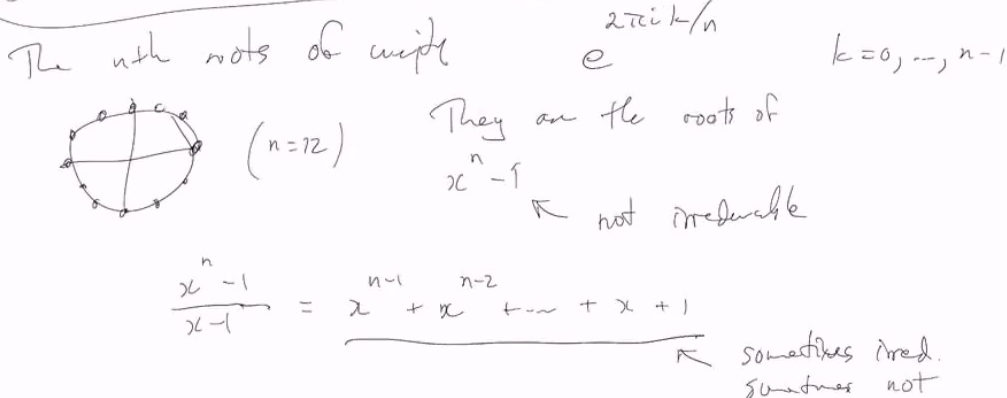 The nth roots of unity e^{2πik/n} k=0, ..., n-1
(n=12) They are the roots of
x^n - 1
↖ not irreducible
\frac{x^n - 1}{x - 1} = x^{n-1} + x^{n-2} + ... + x + 1
↖ sometimes irred.
sometimes not